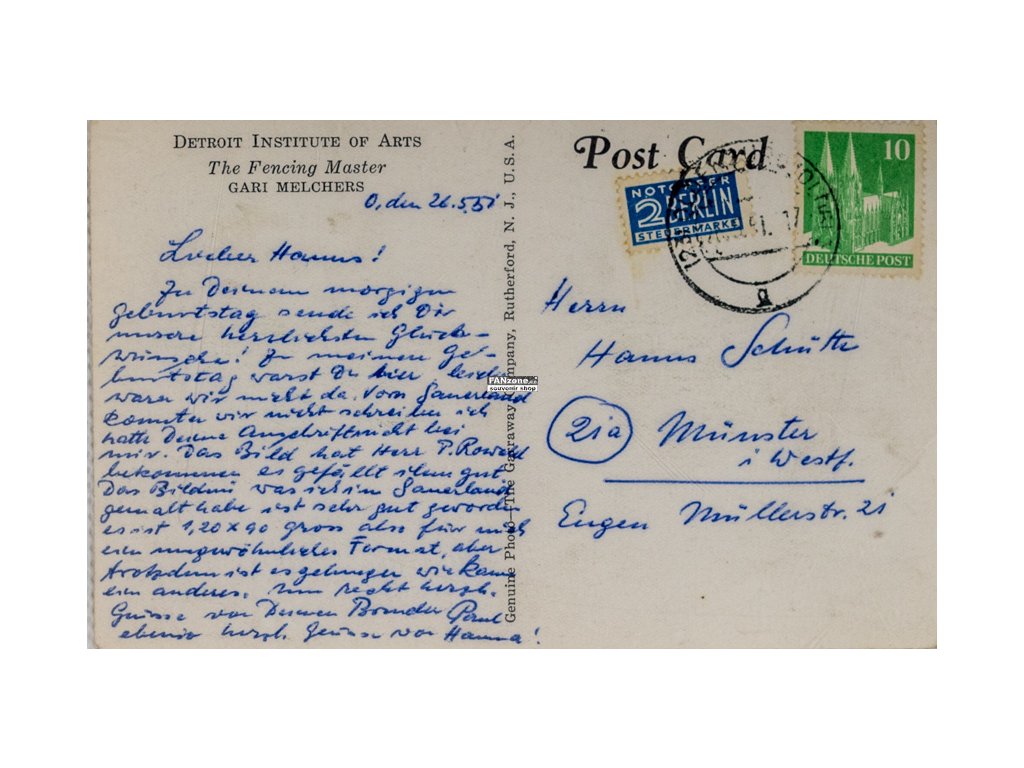 DETROIT INSTITUTE OF ARTS
The Fencing Master
GARI MELCHERS
O, den 26.5.51
Lieber Hanns!
Zu Deinem morgigen
Geburtstag sende ich Dir
unsere herzlichsten Glück-
wünsche! Zu meinem Ge-
burtstag warst Du hier leider
waren wir nicht da. Vom Sauerland
konnten wir nicht schreiben ich
hatte Deine Anschrift nicht bei
mir. Das Bild hat Herr P.
bekommen es gefällt ihm gut
Das Bildnis was ich im Sauerland
gemalt habe ist sehr gut geworden
es ist 1,20 x 90 gross also für mich
ein ungewöhnliches Format, aber
trotzdem ist es gelungen wie kaum
ein anderes. Nun recht herzl.
Grüsse von Deinem Bruder Paul
ebenso herzl. Grüsse von Hanna!
Genuine Photo—The Garraway Company, Rutherford, N. J., U.S.A.
FANzone
souvenir shop
Post Card
NOTOPFER
2 BERLIN
STEUERMARKE
10
DEUTSCHE POST
g
Herrn
Hanns Schütte
21a Münster
i Westf.
Eugen Müllerstr. 21